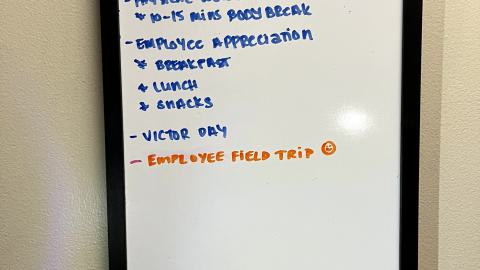 * 10-15 mins BODY BREAK
- EMPLOYEE APPRECIATION
* BREAKFAST
* LUNCH
* SNACKS
- VICTOR DAY
- EMPLOYEE FIELD TRIP